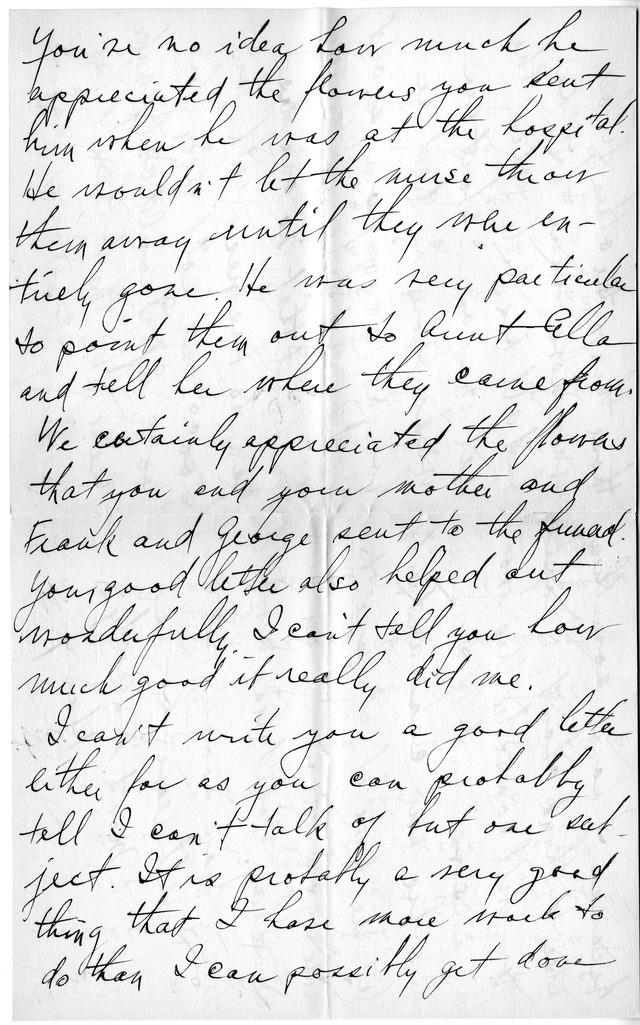 You've no idea how much he
appreciated the flowers you sent
him when he was at the hospital.
He wouldn't let the nurse throw
them away until they whe en-
tirely gone. He was very particular
to point them out to Aunt Ella
and tell her where they came from.
We certainly appreciated the flowers
that you and your mother and
Frank and George sent to the funeral.
Your good letter also helped out
wonderfully. I can't tell you how
much good it really did me.
I can't write you a good letter
either for as you can probably
tell I can't talk of but one sub-
ject. It is probably a very good
thing that I have more work to
do than I can possibly get done